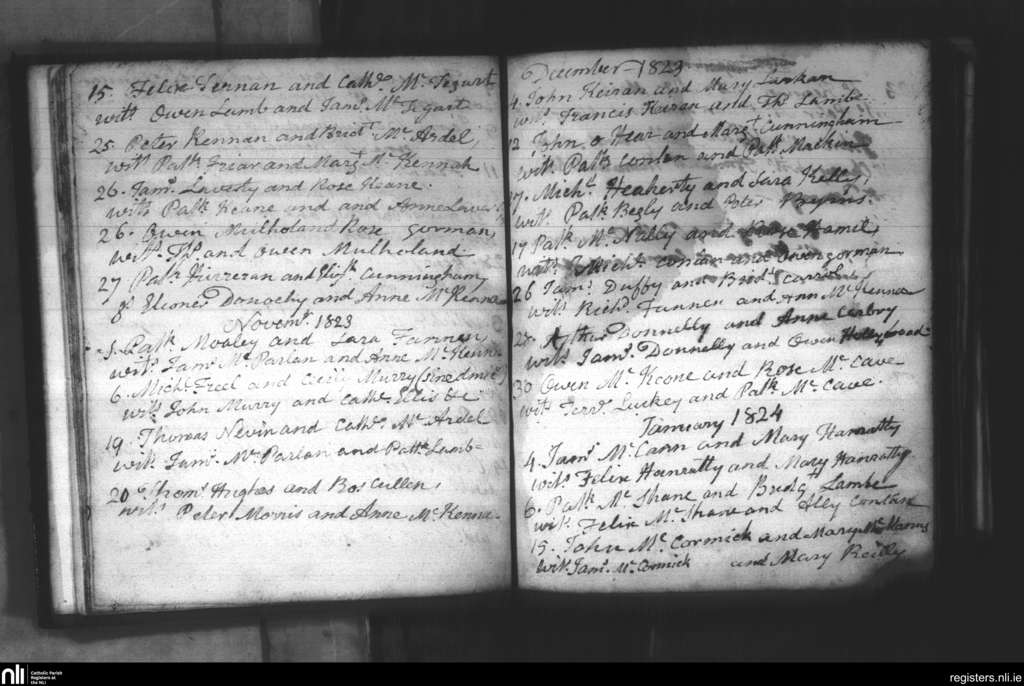 15. Felix Ternan and Cath.e Mc Tegart
witt Owen Lamb and Jam.s Mc Tegart
25. Peter Kennan and Brid.t Mc Ardel,
witt Patk. Friar and Marg.t Mc Kennah
26. Jam.s Laverty and Rose Keane.
witt Patk Keane and and Anne
26. Owen Mulholand Rose Gorman,
witt. and Owen Mulholand
27 Patk. and Cunningham,
Donochy and Anne Mc Kenna
Novem.r 1823
Patk Mooley and Sara Fannen,
witt. Jam.s Mc Parlan and Anne Mc
6. Mich.l Freel and Murry
wit. John Murry and Cath.e
19. Thomas Nevin and Cath.e Mc Ardel
wit. Jam.s Mc Parlan and Patk. Lamb=
20 Thom.s Hughes and Ros Cullen,
wit. Peter Morris and Anne Mc Kenna.
December 1823
4. John Keiran and Mary Larkan
wit. Francis Kiaran and Lamb
12 John o Hear and Marg.t Cunningham
wit. Patk Conlan and Patk. Mackin
Mich.l Heaherty and Sara Kelly,
wit. Patk Begly and Peter Byrns.
17 Patk. Mc Nalley and Hamel,
witt. Mich.l Conlan and Owen Gorman
26 Jam.s Duffy and Brid.t
wit. Rich.d Fannen and Ann Mc Kennea
Donnelly and Anne
wit. Jam.s Donnelly and Owen Hollywood
30 Owen Mc Keone and Rose Mc Cave
wit. Luckey and Patk. Mc Cave.
January 1824
4. Jam.s Mc Cann and Mary Hanratty
wit. Felix Hanratty and Mary Hanratty.
6. Patk. Mc Shane and Bridg.t Lambe
wit. Felix Mc Shane and Conlan
15. John Mc Cormick and Mary Mc Manus
Wit. Jam.s Mc Cormick and Mary Reilly
nli
Catholic Parish
Registers at
the NLI
registers.nli.ie